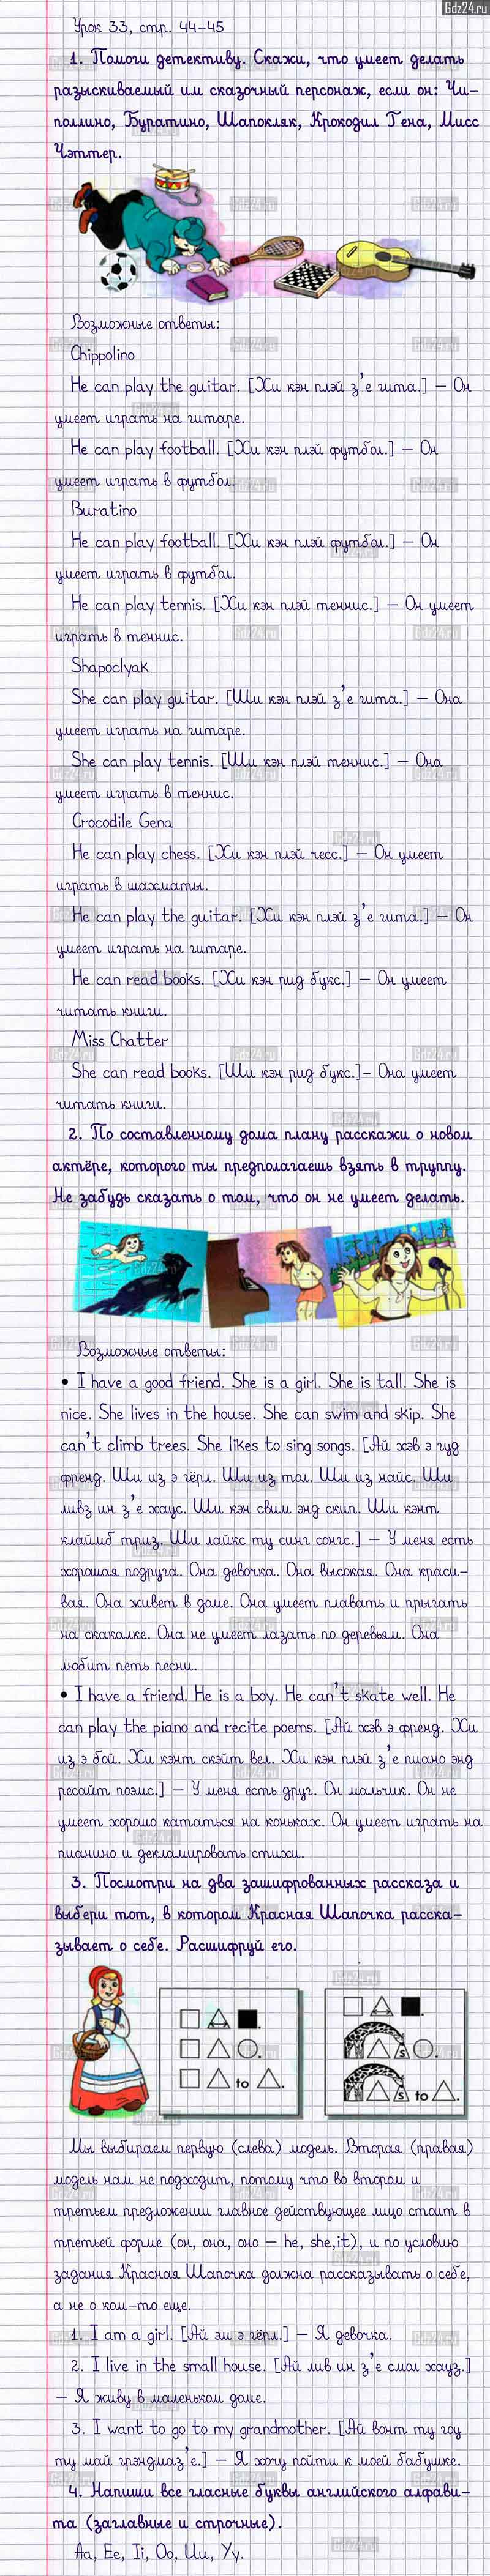 Gdz24.ru
Урок 33, стр. 44-45
1. Помоги детективу. Скажи, что умеет делать
разыскиваемый им сказочный персонаж, если он: Чи-
поллино, Буратино, Шапокляк, Крокодил Гена, Мисс
Чэттер.
Возможные ответы:
Chippolino
He can play the guitar. [Хи кэн плэй з'е гита.] – Он
умеет играть на гитаре.
He can play football. [Хи кэн плэй футбол.] – Он
умеет играть в футбол.
Buratino
He can play football. [Хи кэн плэй футбол.] – Он
умеет играть в футбол.
He can play tennis. [Хи кэн плэй теннис.] – Он умеет
играть в теннис.
Shapoclyak
She can play guitar. [Ши кэн плэй з'е гита.] – Она
умеет играть на гитаре.
She can play tennis. [Ши кэн плэй теннис.] – Она
умеет играть в теннис.
Crocodile Gena
He can play chess. [Хи кэн плэй чесс.] – Он умеет
играть в шахматы.
He can play the guitar. [Хи кэн плэй з'е гита.] – Он
умеет играть на гитаре.
He can read books. [Хи кэн рид букс.] – Он умеет
читать книги.
Miss Chatter
She can read books. [Ши кэн рид букс.]– Она умеет
читать книги.
2. По составленному дома плану расскажи о новом
актёре, которого ты предполагаешь взять в труппу.
Не забудь сказать о том, что он не умеет делать.
Возможные ответы:
• I have a good friend. She is a girl. She is tall. She is
nice. She lives in the house. She can swim and skip. She
can't climb trees. She likes to sing songs. [Ай хэв э гуд
френд. Ши из э гёрл. Ши из тол. Ши из найс. Ши
ливз ин з'е хаус. Ши кэн свим энд скип. Ши кэнт
клаймб триз. Ши лайкс ту синг сонгс.] – У меня есть
хорошая подруга. Она девочка. Она высокая. Она краси-
вая. Она живет в доме. Она умеет плавать и прыгать
на скакалке. Она не умеет лазать по деревьям. Она
любит петь песни.
• I have a friend. He is a boy. He can't skate well. He
can play the piano and recite poems. [Ай хэв э френд. Хи
из э бой. Хи кэнт скэйт вел. Хи кэн плэй з'е пиано энд
ресайт поэмс.] – У меня есть друг. Он мальчик. Он не
умеет хорошо кататься на коньках. Он умеет играть на
пианино и декламировать стихи.
3. Посмотри на два зашифрованных рассказа и
выбери тот, в котором Красная Шапочка расска-
зывает о себе. Расшифруй его.
to
s
s to
Мы выбираем первую (слева) модель. Вторая (правая)
модель нам не подходит, потому что во втором и
третьем предложении главное действующее лицо стоит в
третьей форме (он, она, оно – he, she,it), и по условию
задания Красная Шапочка должна рассказывать о себе,
а не о ком-то еще.
1. I am a girl. [Ай эм э гёрл.] – Я девочка.
2. I live in the small house. [Ай лив ин з'е смол хауз.]
– Я живу в маленьком доме.
3. I want to go to my grandmother. [Ай вонт ту гоу
ту май грэндмаз'е.] – Я хочу пойти к моей бабушке.
4. Напиши все гласные буквы английского алфави-
та (заглавные и строчные).
Aa, Ee, Ii, Oo, Uu, Yy.